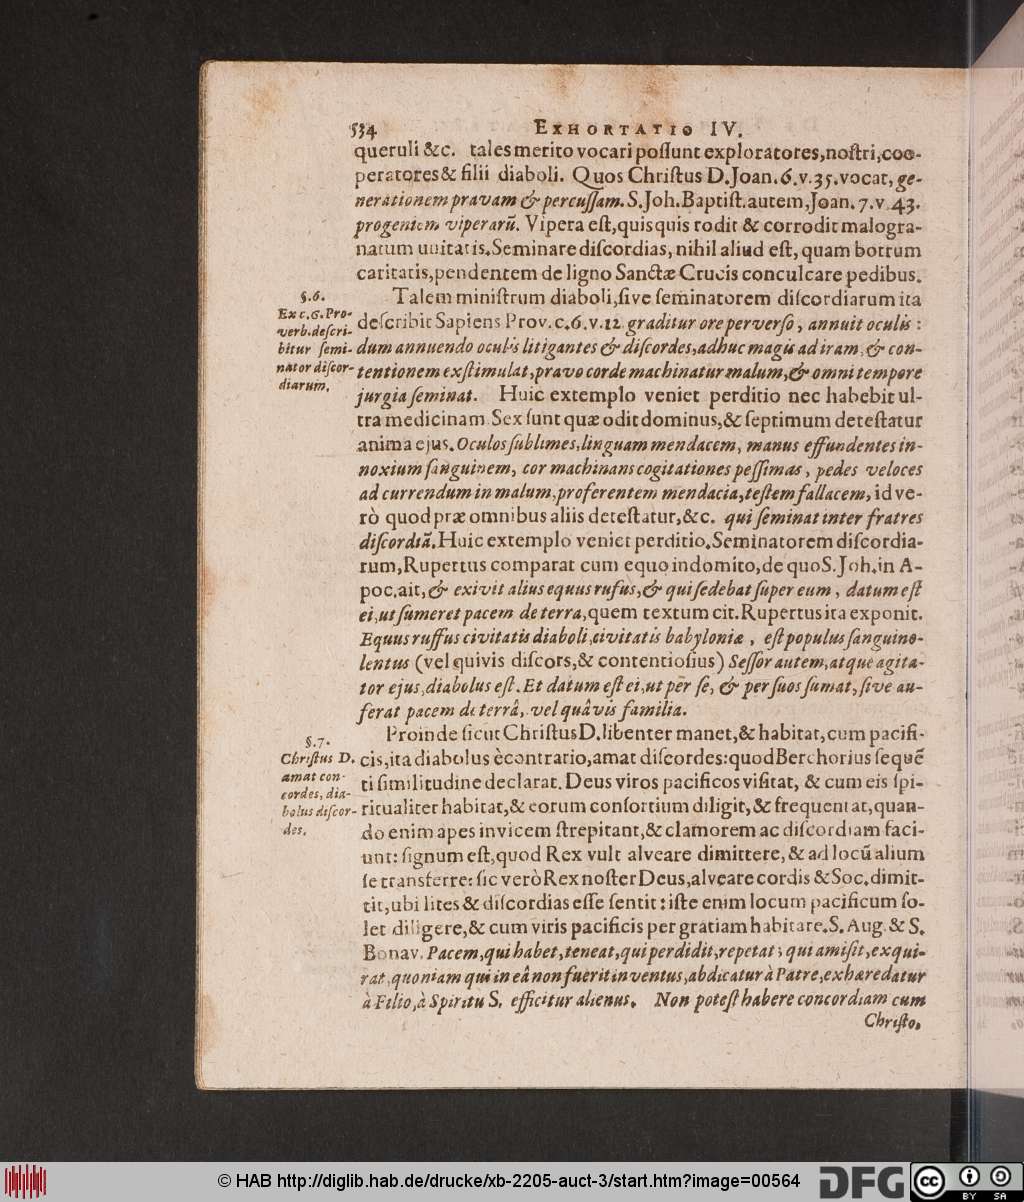 534 EXHORTATIO IV.
queruli &c. tales merito vocari poſſunt exploratores, noſtri, coo-
peratores & filii diaboli. Quos Chriſtus D. Joan. 6. v. 35. vocat, ge-
nerationem pravam & percuſſam. S. Joh. Baptiſt. autem, Joan. 7. v. 43.
progeniem viperarũ. Vipera eſt, quisquis rodit & corrodit malogra-
natum unitatis. Seminare diſcordias, nihil aliud eſt, quam botrum
caritatis, pendentem de ligno Sanctæ Crucis conculcare pedibus.
§. 6.
Ex c. 6. Pro-
verb. deſcri-
bitur ſemi-
nator diſcor-
diarum.
Talem miniſtrum diaboli, ſive ſeminatorem diſcordiarum ita
deſcribit Sapiens Prov. c. 6. v. 12 graditur ore perverſo, annuit oculis:
dum annuendo oculis litigantes & diſcordes, adhuc magis ad iram, & con-
tentionem exſtimulat, pravo corde machinatur malum, & omni tempore
jurgia ſeminat. Huic extemplo veniet perditio nec habebit ul-
tra medicinam. Sex ſunt quæ odit dominus, & ſeptimum deteſtatur
anima ejus. Oculos ſublimes, linguam mendacem, manus effundentes in-
noxium ſanguinem, cor machinans cogitationes peſſimas, pedes veloces
ad currendum in malum, proferentem mendacia, teſtem fallacem, id ve-
rò quod præ omnibus aliis deteſtatur, &c. qui ſeminat inter fratres
diſcordiã. Huic extemplo veniet perditio. Seminatorem diſcordia-
rum, Rupertus comparat cum equo indomito, de quo S. Joh. in A-
poc. ait, & exivit alius equus rufus, & qui ſedebat ſuper eum, datum eſt
ei, ut ſumeret pacem de terra, quem textum cit. Rupertus ita exponit.
Equus ruffus civitatis diaboli, civitatis babyloniæ, eſt populus ſanguino-
lentus (vel quivis diſcors, & contentioſius) Seſſor autem, atque agita-
tor ejus, diabolus eſt. Et datum eſt ei, ut per ſe, & per ſuos ſumat, ſive au-
ferat pacem de terrâ, vel quâvis familia.
§. 7.
Chriſtus D.
amat con-
cordes, dia-
bolus diſcor-
des.
Proinde ſicut Chriſtus D. libenter manet, & habitat, cum pacifi-
cis, ita diabolus è contrario, amat diſcordes: quod Berchorius ſequẽ
ti ſimilitudine declarat. Deus viros pacificos viſitat, & cum eis ſpi-
ritualiter habitat, & eorum conſortium diligit, & frequentat, quan-
do enim apes invicem ſtrepitant, & clamorem ac diſcordiam faci-
unt: ſignum eſt, quod Rex vult alveare dimittere, & ad locũ alium
ſe transferre: ſic verò Rex noſter Deus, alveare cordis & Soc. dimit-
tit, ubi lites & diſcordias eſſe ſentit: iſte enim locum pacificum ſo-
let diligere, & cum viris pacificis per gratiam habitare. S. Aug. & S.
Bonav. Pacem, qui habet, teneat, qui perdidit, repetat; qui amiſit, exqui-
rat, quoniam qui in eâ non fuerit inventus, abdicatur à Patre, exhæredatur
à Filio, à Spiritu S. efficitur alienus. Non poteſt habere concordiam cum
Chriſto,
© HAB http://diglib.hab.de/drucke/xb-2205-auct-3/start.htm?image=00564
DFG
cc BY SA